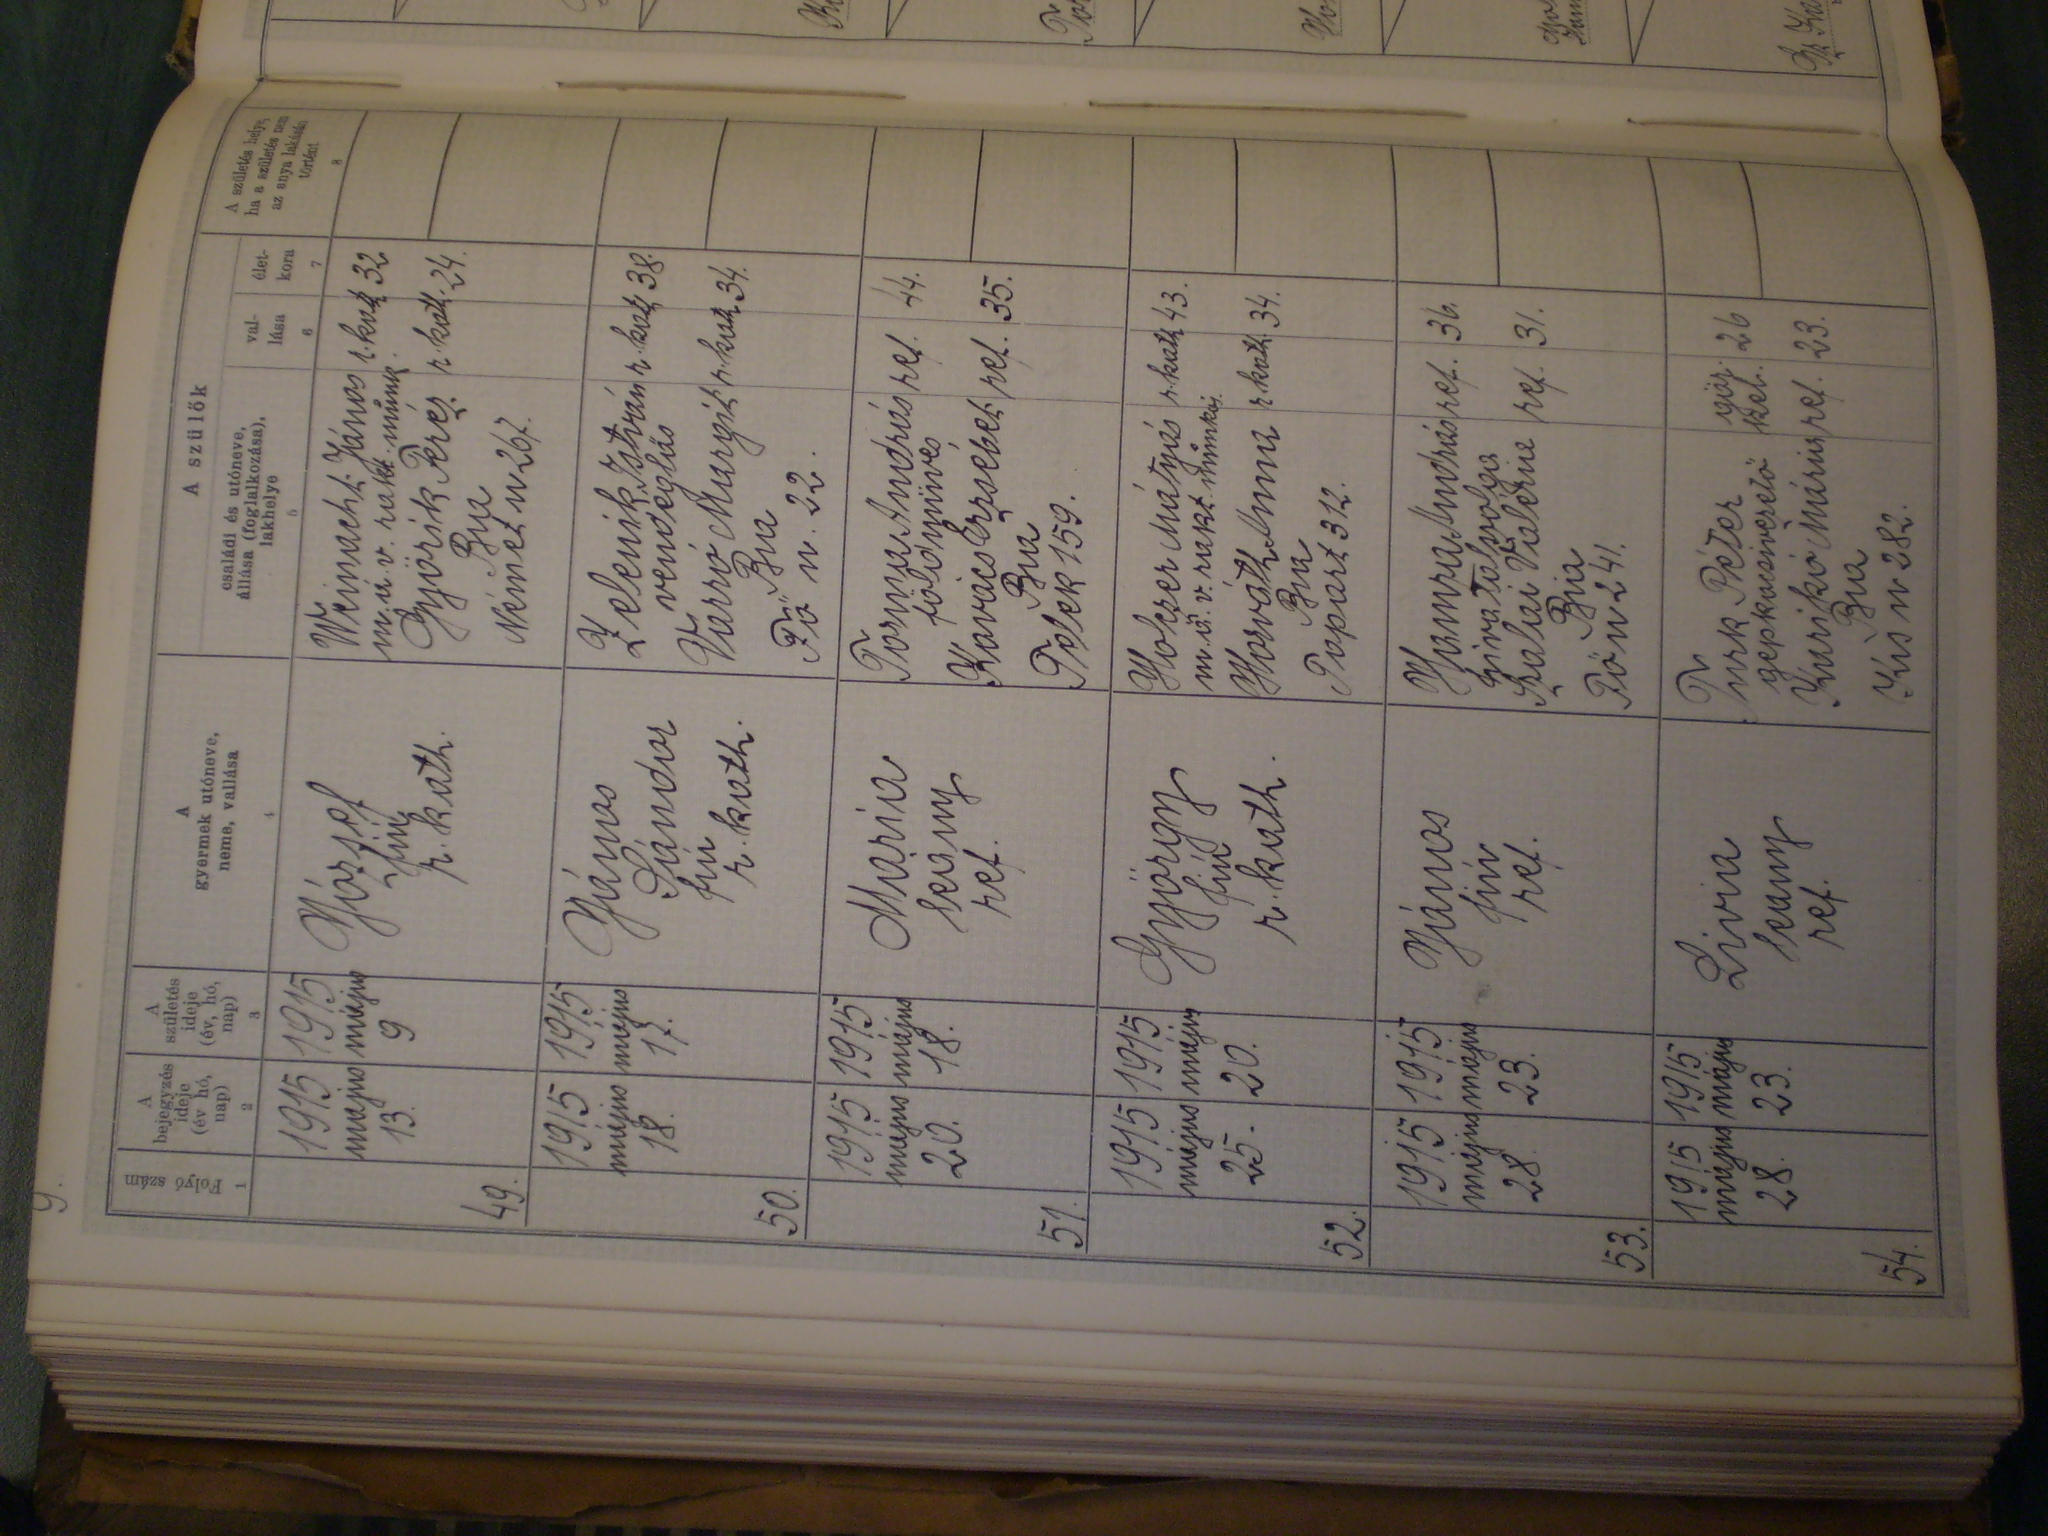 9.
Folyó szám
A bejegyzés ideje (év hó, nap)
A születés ideje (év, hó, nap)
A gyermek utóneve, neme, vallása
A szülők
családi és utóneve, állása (foglalkozása), lakhelye
val- lása
élet- kora
A születés helye, ha a születés nem az anya lakásán történt
1 2 3 4 5 6 7 8
49.
1915 május 13.
1915 május 9
József
fiú
r. kath.
Weinacht János r. kath 32
m. á. v. rakt. munk.
Györik Teréz r. kath. 24.
Bia
Német u 267.
50.
1915 május 18.
1915 május 17.
János
Sándor
fiú
r. kath.
Zelenik István r. kath 38.
vendéglős
Varró Margit r. kath 34.
Bia
Fő u. 22.
51.
1915 május 20.
1915 május 18.
Mária
leány
ref.
Torma András ref. 44.
földmives
Kovács Erzsébet ref. 35.
Bia
Telek 159.
52.
1915 május 25.
1915 május 20.
György
fiú
r. kath.
Holzer Mátyás r. kath 43.
m. á. v. rakt. munkás
Horváth Anna r. kath 34.
Bia
312.
53.
1915 május 28.
1915 május 23.
János
fiú
ref.
András ref. 36.
Szalai Valéria ref. 31.
Bia
Fő u 241.
54.
1915 május 28.
1915 május 23.
Livia
leány
ref.
Turk Péter 26
gépkocsivezető
Kurikó Mária ref. 23.
Bia
Kis u 282.